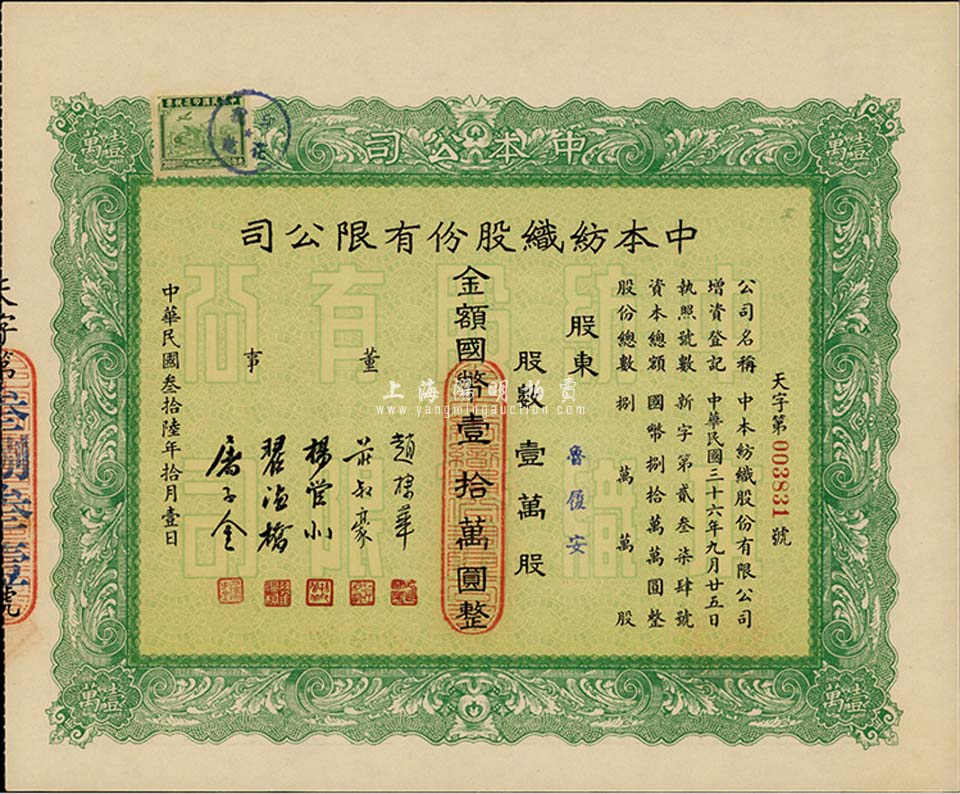 中本公司
壹萬
壹萬
中本紡織股份有限公司
天字第003831號
公司名稱 中本紡織股份有限公司
增資登記 中華民國三十六年九月廿五日
執照號數 新字第貳叁柒肆號
資本總額 國幣捌拾萬萬圓整
股份總數 捌萬萬股
股東 魯履安
股數壹萬股
金額國幣壹拾萬圓整
董事
趙棣華
莊叔豪
楊管北
翟溫橋
中華民國叁拾陸年拾月壹日
天字第
號
上海陽明拍賣
www.yangmingauction.com
壹萬
壹萬